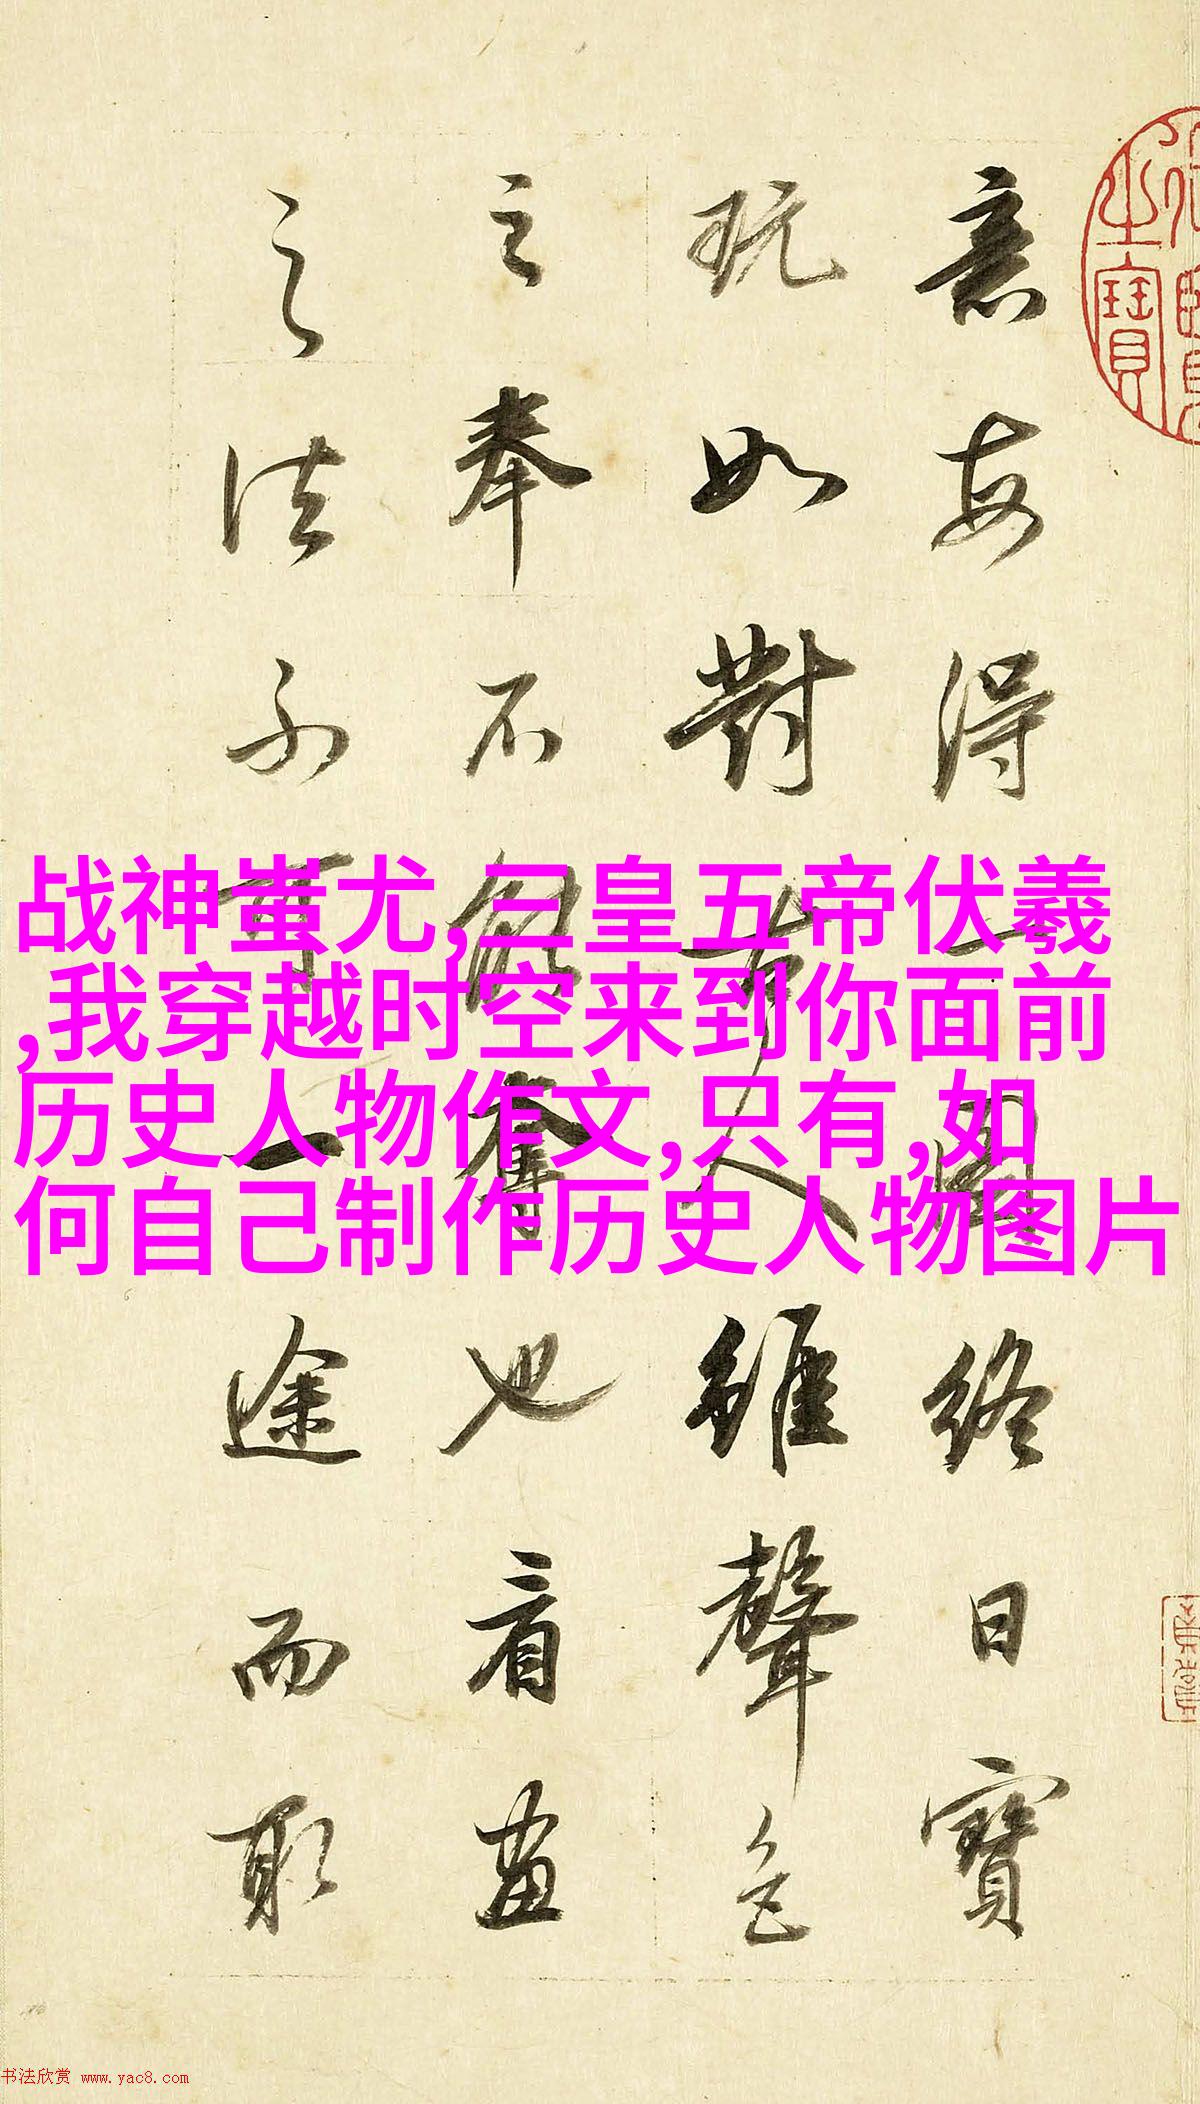 意每得一圖終日寶
玩如對古人雖聲色
之奉不能奪也看畫
之法不可一途而取
战神蚩尤,三皇五帝伏羲
,我穿越时空来到你面前
历史人物作文,只有,如
何自己制作历史人物图片
之寶
书法欣赏 www.yac8.com